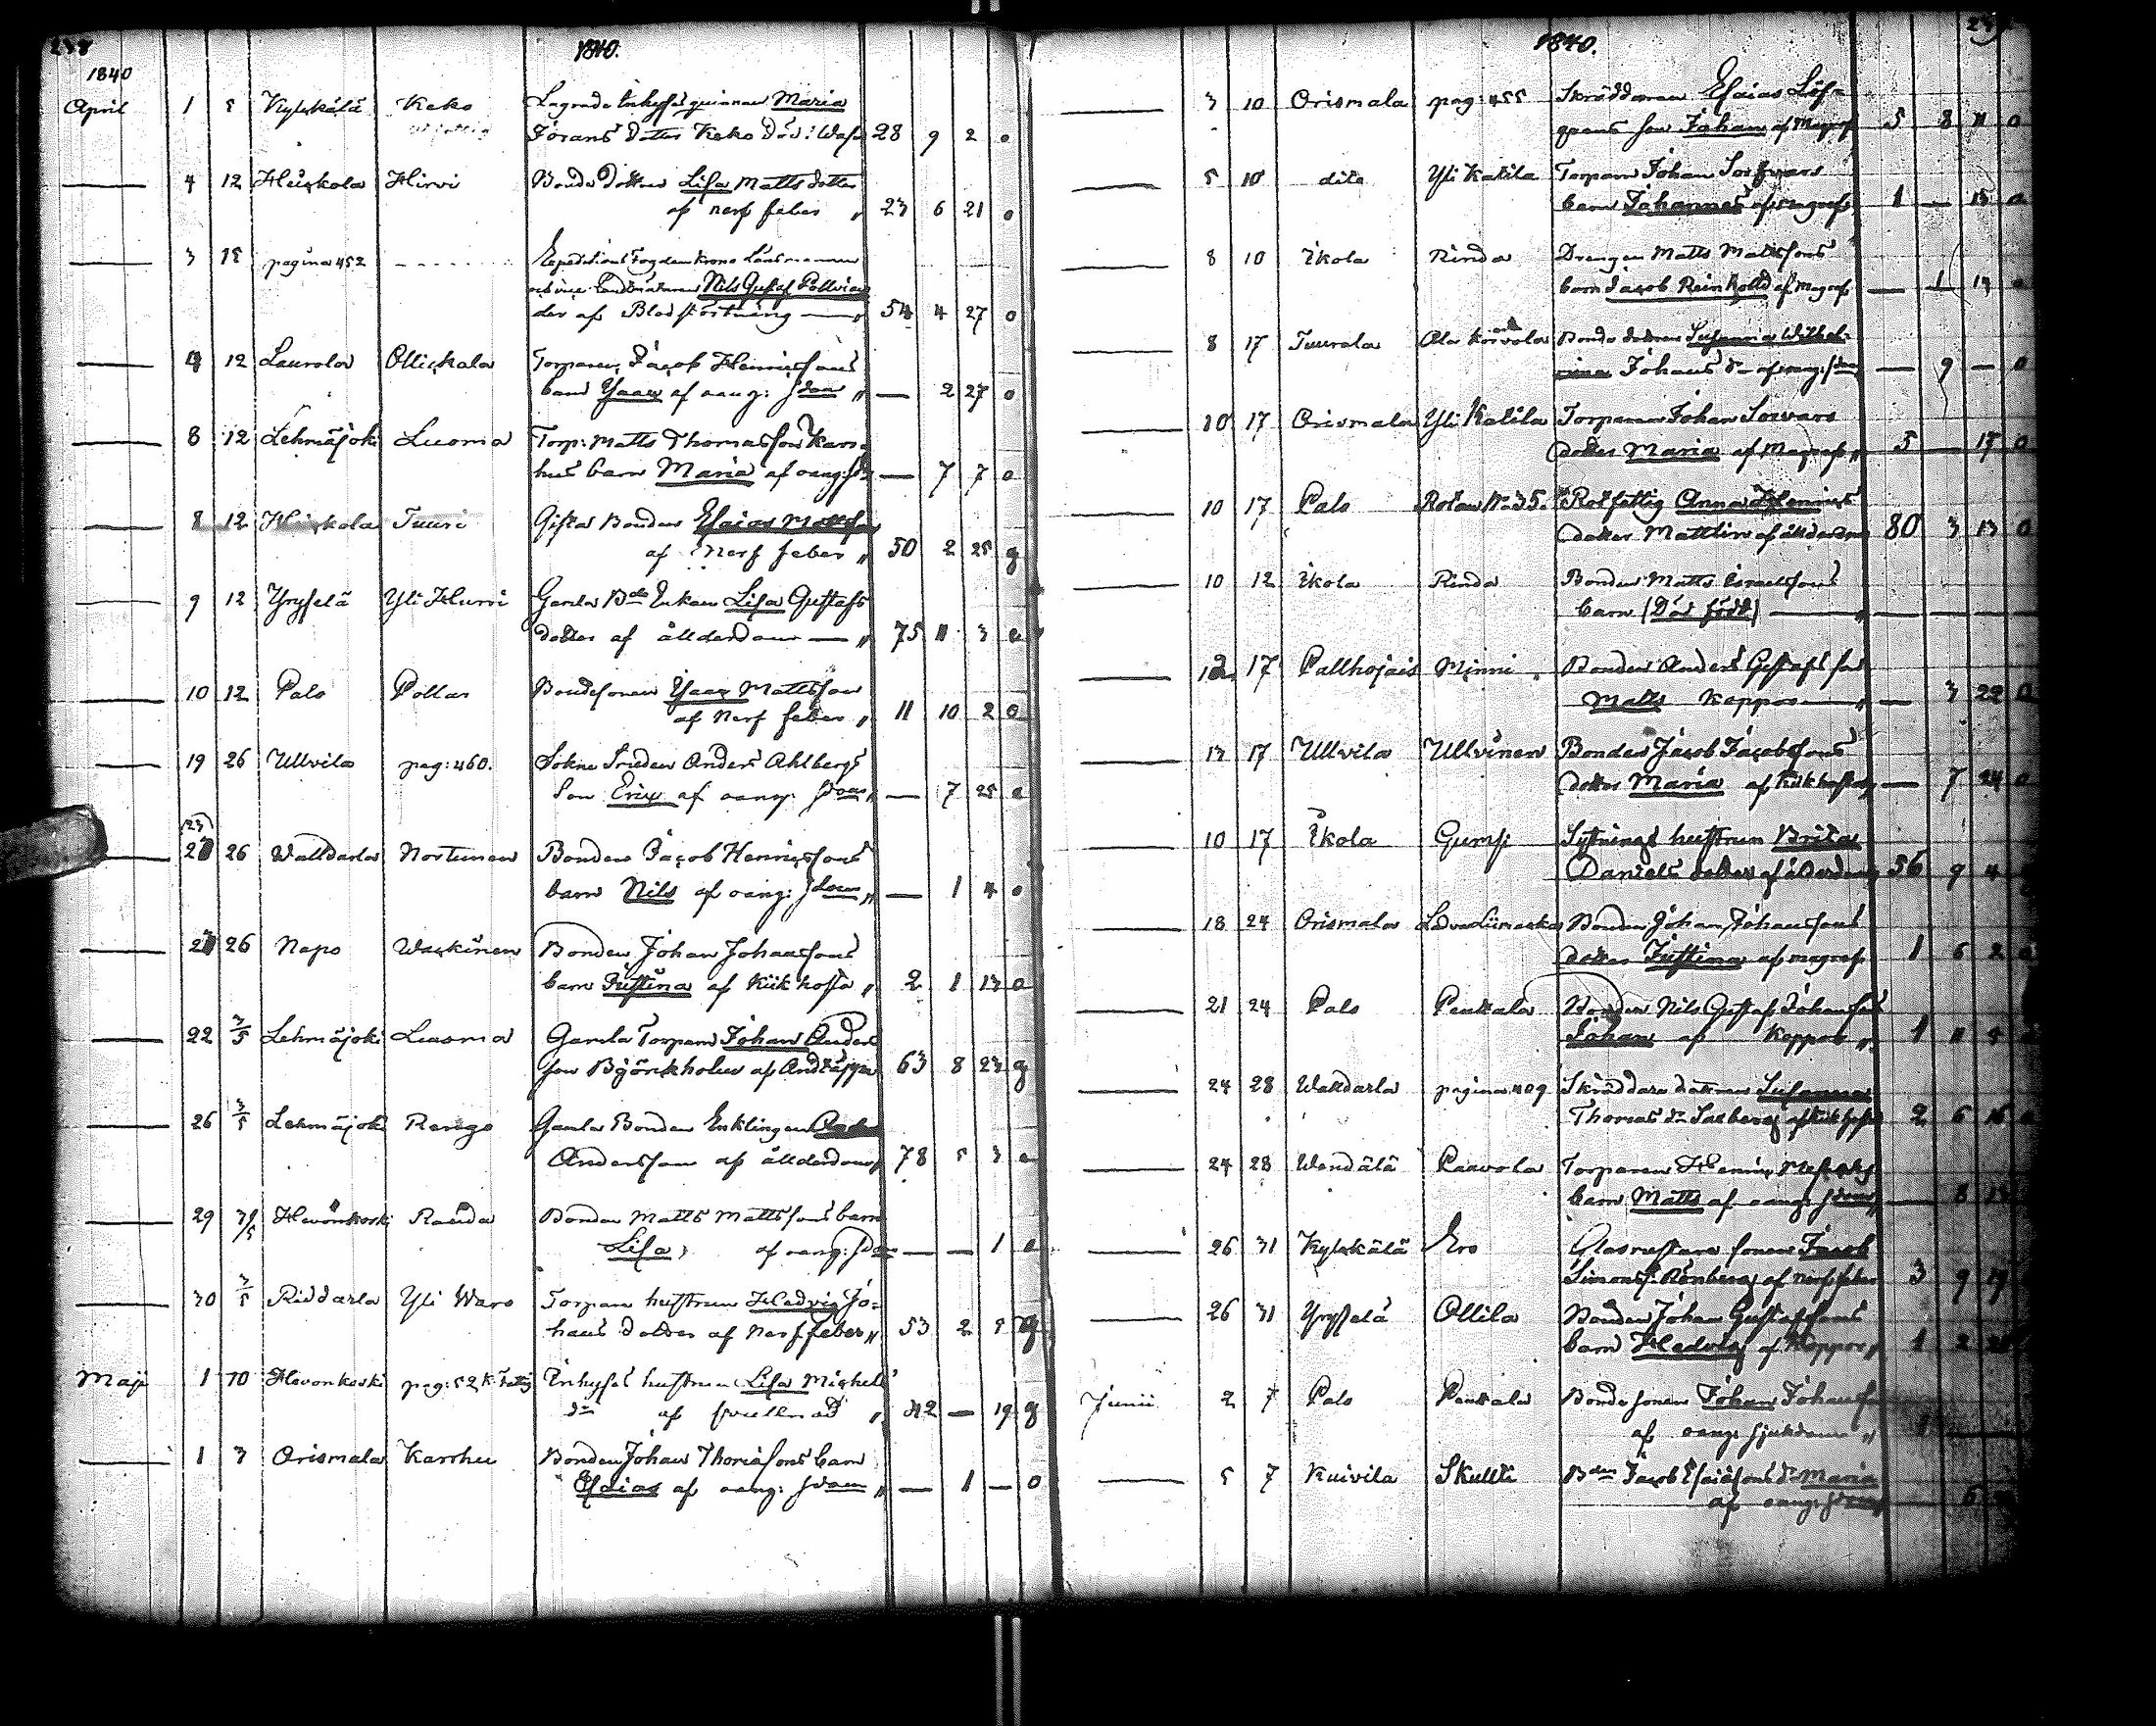 238
1840.
1840
April 1 5 Kylkkälä Keko Lagrade Inhyses qvinnan Maria
Jörans dotter Keko Död: Wass 28 9 2 o
4 12 Heikola Hirvi Bonde Dottren Lisa Matts dotter
af nerf feber " 23 6 21 o
3 15 pagina 452 Expeditions Fogden Krono Länsmannen
och vice Landtmätaren Nils Gustaf Pollvian
der af Blodstörtning " 54 4 27 o
4 12 Laurola Ollickala Torparen Jacob Henricsons
barn Isaac af oang: sjdom " — 2 27 o
8 12 Lehmäjoki Luoma Torp: Matts Thomasson Karr
hus barn Maria af oang: sjd — 7 7 o
8 12 Heikola Tuuri Gifta Bonden Esaias Mattsson
af Nerf feber " 50 2 25 g
9 12 Yryselä Yli Hurri Gamla Bde Enkan Lisa Gustafs
dotter af ållderdom — " 75 11 3 e
10 12 Palo Pollar Bondesonen Isaac Mattsson
af Nerf feber " 11 10 2 o
19 26 Ullvila pag: 460. Sokne Smeden Anders Ahlbergs
Son Eric af oang: sjdom " — 7 25 o
(23)
26 Walldarla Nortunen Bonden Jacob Henricsons
barn Nils af oang: sjdom " — 1 4 o
26 Napo Waskinen Bonden Johan Johanssons
barn Justina af Kikhosta " 2 1 13 o
22 3/5 Lehmäjoki Luoma Gamla Torparn Johan Anders
son Björkholm af Andtäppa 63 8 23 g
26 3/5 Lehmäjoki Rengo Gamla Bonden Enklingen
Andersson af ållderdom " 78 5 3 e
29 3/5 Hevonkoski Rauda Bonden Matts Mattssons barn
Lisa, af oang: sjd — — 1 o
30 3/5 Riddarla Yli Waro Torpare hustrun Hedvig Jo=
hans dotter af Nerf feber " 53 2 5 g
Maji 1 10 Hevonkoski pag: 52 K: Fattig Inhyses hustrun Lisa Michels
dr af svullnad " 42 — 19 g
1 3 Orismala Karrhu Bonden Johan Thomasons barn
Esaias af oang: sjdom " — 1 — o
239
1840.
3 10 Orismala pag: 455 Skräddaren Esaias Löf=
qvens son Johan af Magref 5 8 11 o
5 10 dito Yli Katila Torparn Johan Sorvars
barn Johannes af magref " 1 — 15 o
8 10 Ikola Rinda Drengen Matts Mattsons
barn Jacob Reinhold af Magref — 1 14 o
8 17 Tuurala Ala Korvola Bonde dottren Susanna Wilhel=
mina Johans dr af oang: sjdom — 9 — o
10 17 Orismala Yli Katila Torparen Johan Sorvars
dotter Maria af Magref " 5 — 17 o
10 17 Palo Rotan No 35. Rotfattig Anna Henrics
dotter Mattlin af ållderdom 80 3 13 o
10 12 Ikola Rinda Bonden Matts Israelsons
barn (Död född) — " — — — —
12 17 Pallhojais Minni Bonden Anders Gustafs son
Matts Koppor — " — 3 22 o
13 17 Ullvila Ullvinen Bonden Jacob Jacobssons
dotter Maria af Kikhosta " — 7 24 o
10 17 Ikola Gumsi Sytnings hustrun Brita
Daniels dotter af ålderdom 56 9 4
18 24 Orismala Bonden Johan Johanssons
dotter Justina af magref 1 6 2 o
21 24 Palo Penttala Bonden Nils Gustaf Johansons
Johan af Koppor " 1 11 5
24 28 Walldarla pagina 409 Skräddare dottren Susanna
Thomas dr Salberg af Kikhosta 2 6 16
24 28 Wendälä Paavola Torparen Henric
barn Matts af oang: sjdom — 8 13
26 31 Kylkkälä Ero Glasmästare sonen Jacob
Simons s: Rönberg af nerf feber 3 9 19
26 31 Yryselä Ollila Bonden Johan Gustafssons
barn Hedvig af Koppor " 1 2 21
Junii 2 7 Palo Penttala Bonde sonen Johan Johansson
af oang: sjukdom " 1 —
5 7 Kuivila Skullti Bden Jacob Esaiæsons dr Maria
af oang: sjdom — 6